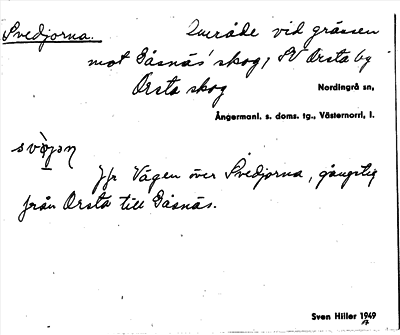 Svedjorna. Område vid gränsen
mot Gåsnäs' skog, SV Orsta by
Orsta skog
Nordingrå sn,
Ångermanl. s. doms. tg., Västernorrl. l.
Jfr Vägen över Svedjorna, gångstig
från Orsta till Gåsnäs.
Sven Hiller 1949